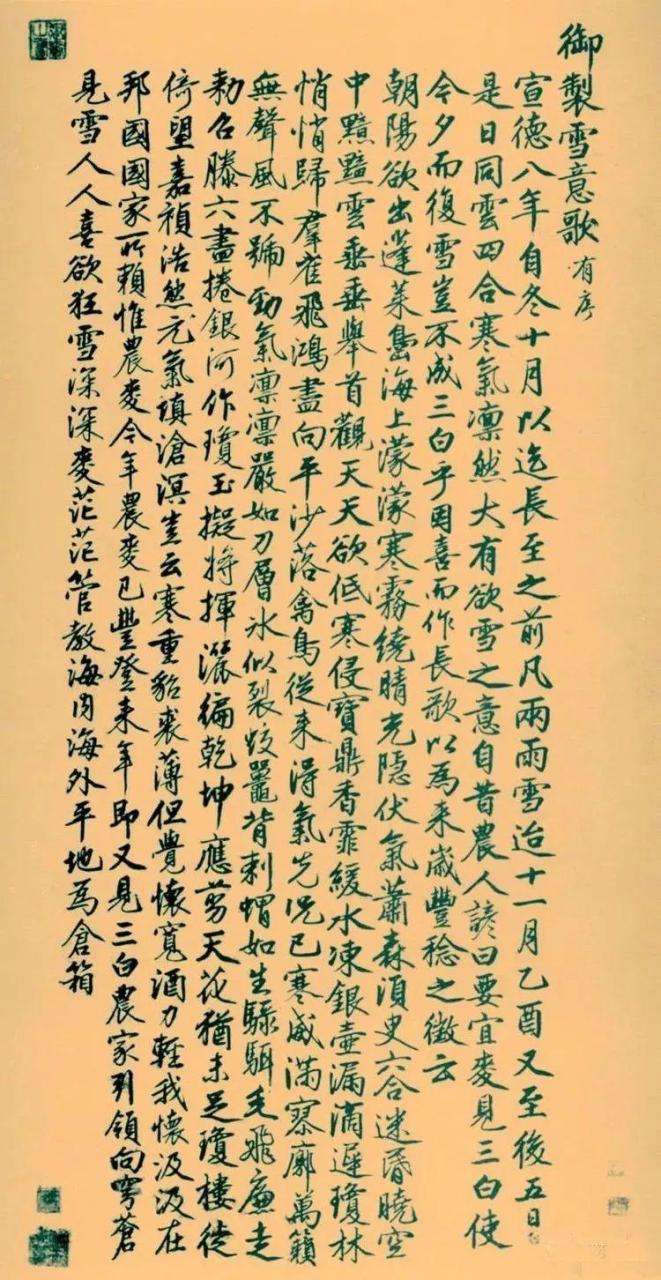 御製雪意歌有序
宣德八年自冬十月以迄長至之前凡兩雨雪迨十一月乙酉又至後五日也
是日同雲四合寒氣凛然大有欲雪之意自昔農人諺曰要宜麥見三白使
今夕而復雪豈不成三白乎因喜而作長歌以為来歲豐稔之徵云
朝陽欲出蓬莱島海上濛濛寒霧繞晴光隱伏氣蕭森湏臾六合迷昏曉空
中黯黯雲垂垂舉首觀天天欲低寒侵寶鼎香霏緩水凍銀壺漏滴遲瓊林
悄悄歸羣雀飛鴻盡向平沙落禽鳥從来得氣先况已寒威满寥廓萬籟
無聲風不號勁氣凛凛嚴如刀層冰似裂蛟鼉背刺蝟如生騄駬毛飛廉走
勅召滕六盡捲銀河作瓊玉擬將揮灑徧乾坤應剪天花猶未足瓊樓徙
倚望嘉禎浩然元氣瑱滄溟豈云寒重貂裘薄但覺懷寬酒力輕我懷汲汲在
邦國國家所賴惟農麥今年農麥已豐登来年即又見三白農家引領向穹蒼
見雪人人喜欲狂雪深深麥茫茫管教海内海外平地為倉箱